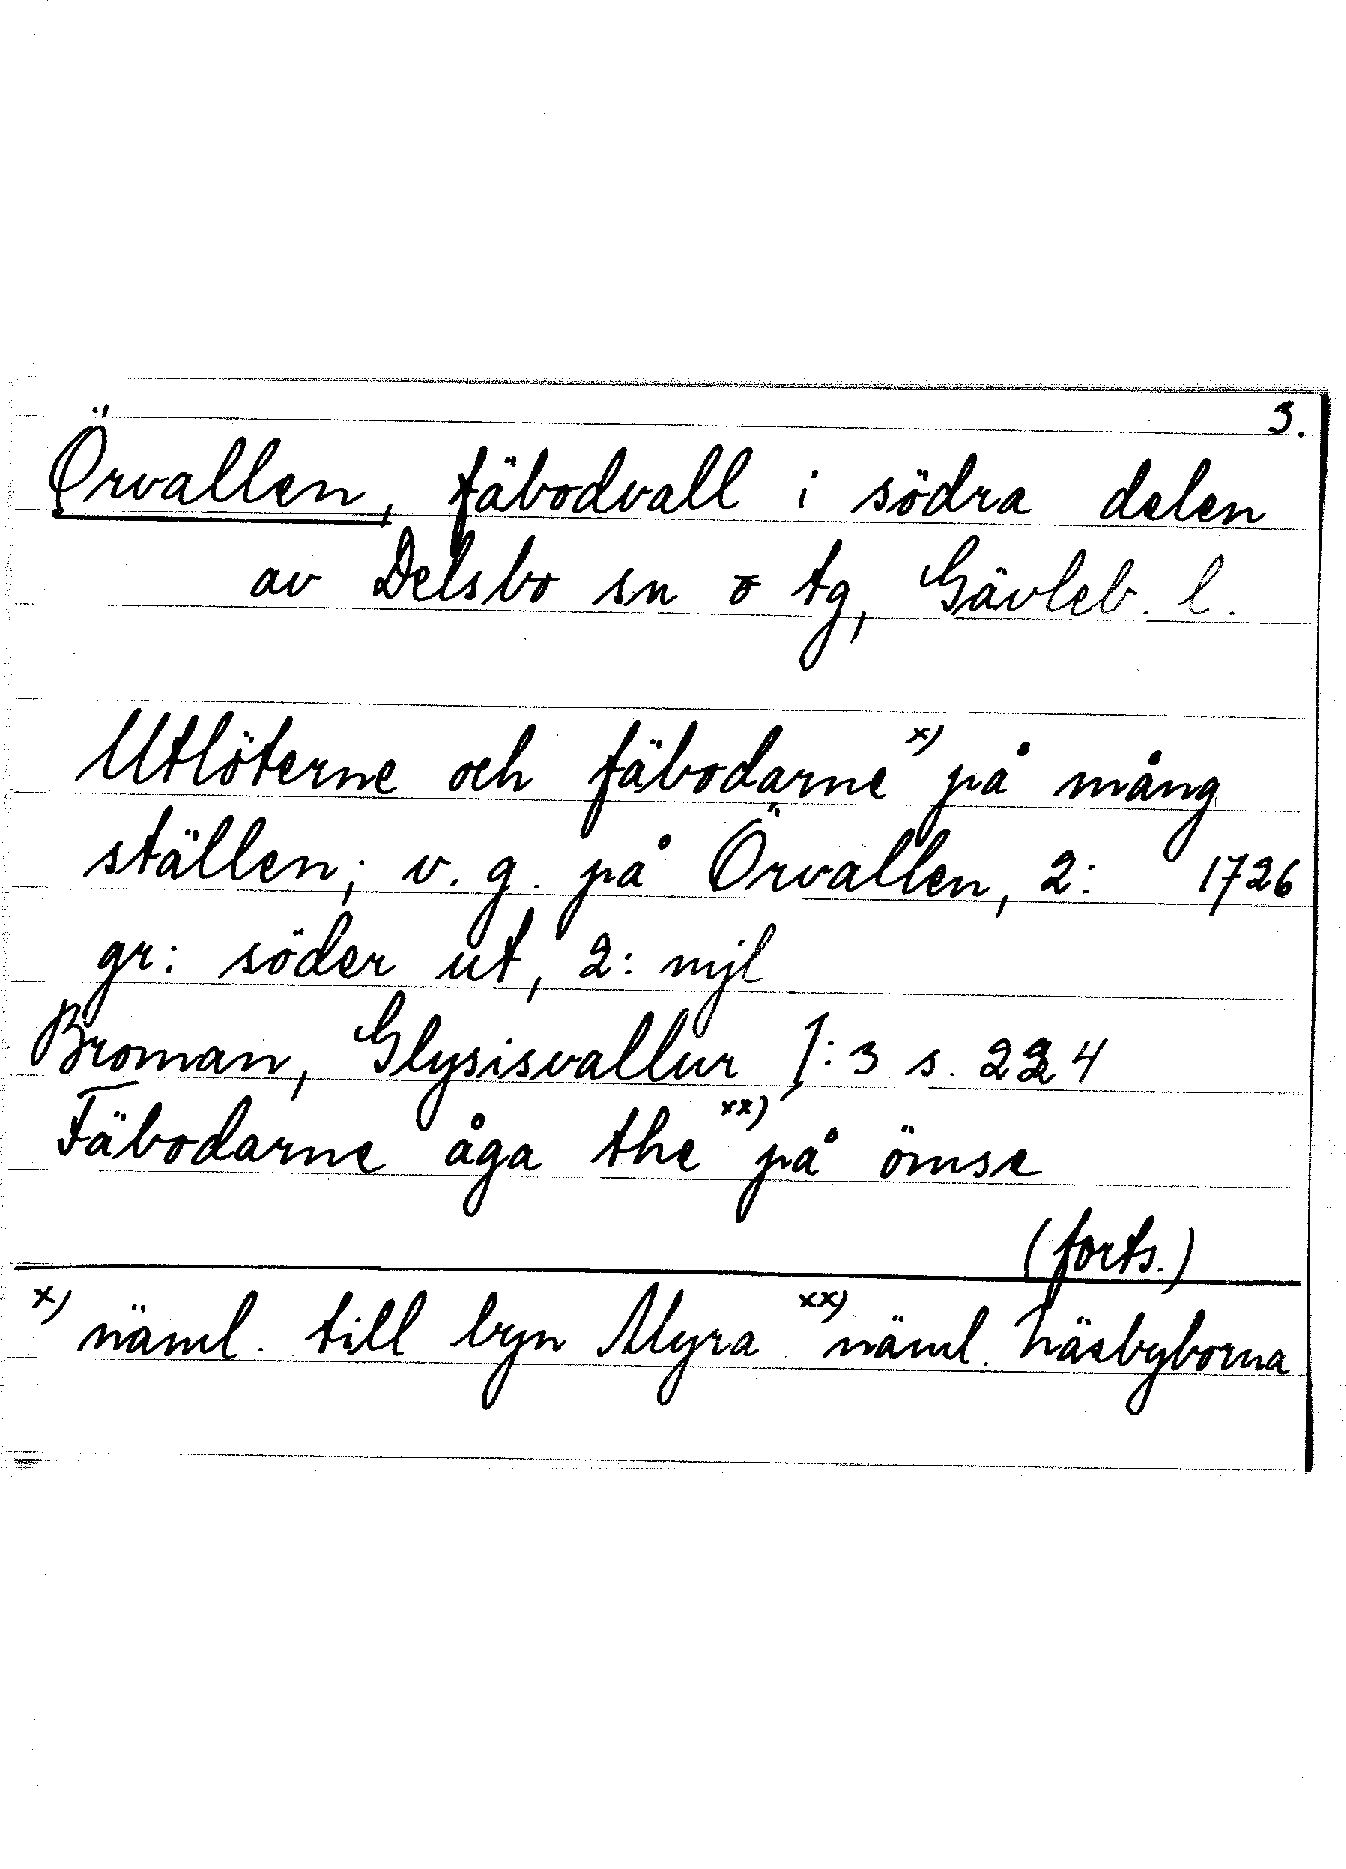 3.
Örvallen, fäbodvall i södra delen
av Delsbo sn o tg, Gävleb. l.
Utlöterne och fäbodarne x) på mång
ställen; v. g. på Örvallen, 2: 1726
gr: söder ut, 2: mjl
Broman, Glysisvallur I:3 s. 224
Fäbodarne åga the xx) på ömse
(forts.)
x) näml. till byn Myra xx) näml. Näsbyborna